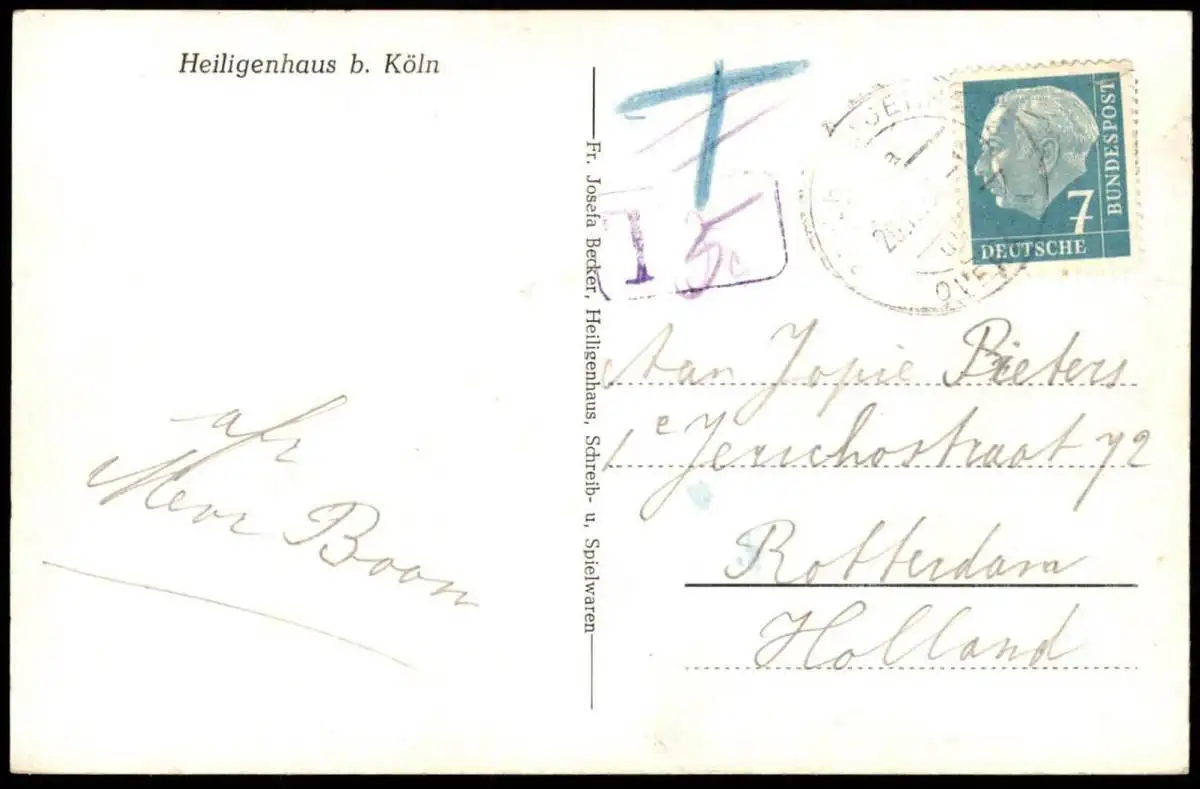 Heiligenhaus b. Köln
Fr. Josefa Becker, Heiligenhaus, Schreib- u, Spielwaren
T
T 5c
a
7
DEUTSCHE
BUNDESPOST
Aan Jopie Pieters
1e Jerichostraat 72
Rotterdam
Holland
afz
Mevr Boon